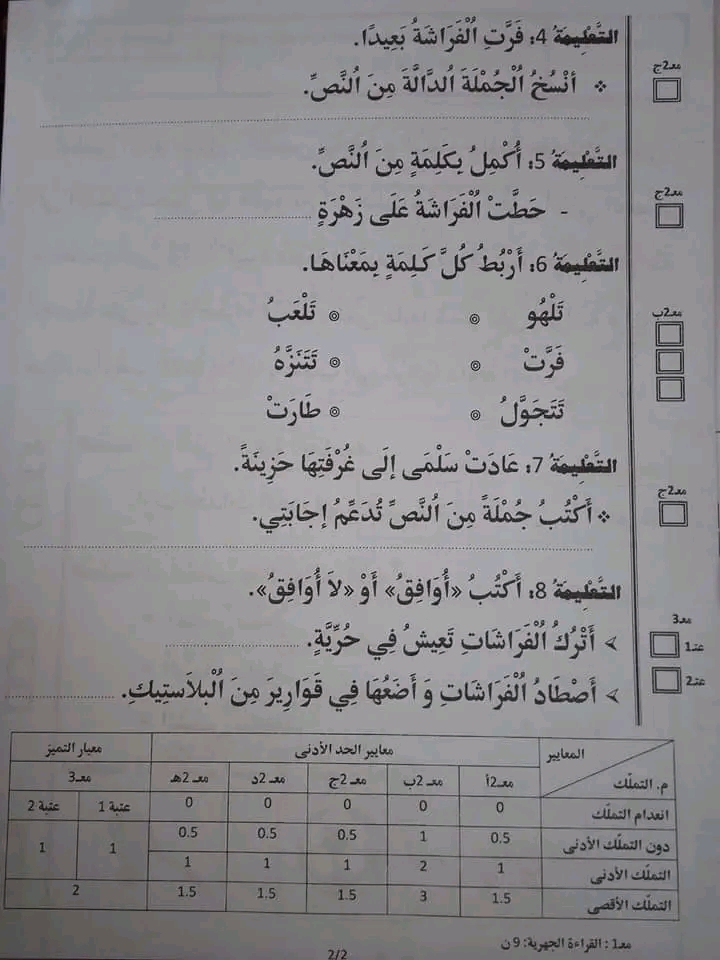 التَّعْلِيمَةُ 4: فَرَّتِ الْفَرَاشَةُ بَعِيدًا.
معـ2ج
❖ أَنْسُخُ الْجُمْلَةَ الدَّالَّةَ مِنَ النَّصِّ.
التَّعْلِيمَةُ 5: أُكْمِلُ بِكَلِمَةٍ مِنَ النَّصِّ.
معـ2ج
- حَطَّتْ الْفَرَاشَةُ عَلَى زَهْرَةٍ ..............................
التَّعْلِيمَةُ 6: أَرْبُطُ كُلَّ كَلِمَةٍ بِمَعْنَاهَا.
معـ2ب
تَلْهُو ◎ ◎ تَلْعَبُ
فَرَّتْ ◎ ◎ تَتَنَزَّهُ
تَتَجَوَّلُ ◎ ◎ طَارَتْ
التَّعْلِيمَةُ 7: عَادَتْ سَلْمَى إِلَى غُرْفَتِهَا حَزِينَةً.
معـ2ج
❖ أَكْتُبُ جُمْلَةً مِنَ النَّصِّ تُدَعِّمُ إِجَابَتِي.
التَّعْلِيمَةُ 8: أَكْتُبُ «أُوَافِقُ» أَوْ «لاَ أُوَافِقُ».
معـ3
عتـ1
➢ أَتْرُكُ الْفَرَاشَاتِ تَعِيشُ فِي حُرِّيَّةٍ. ..............................
عتـ2
➢ أَصْطَادُ الْفَرَاشَاتِ وَ أَضَعُهَا فِي قَوَارِيرَ مِنَ الْبلاَستِيكِ. ..............................
المعايير معايير الحد الأدنى معيار التميز
م. التملّك معـ2أ معـ2ب معـ2ج معـ2د معـ2هـ معـ3
عتبة 1 عتبة 2
انعدام التملّك 0 0 0 0 0
دون التملّك الأدنى 0.5 1 0.5 0.5 0.5 1 1
التملّك الأدنى 1 2 1 1 1
التملّك الأقصى 1.5 3 1.5 1.5 1.5 2
معـ1 : القراءة الجهرية: 9 ن
2/2